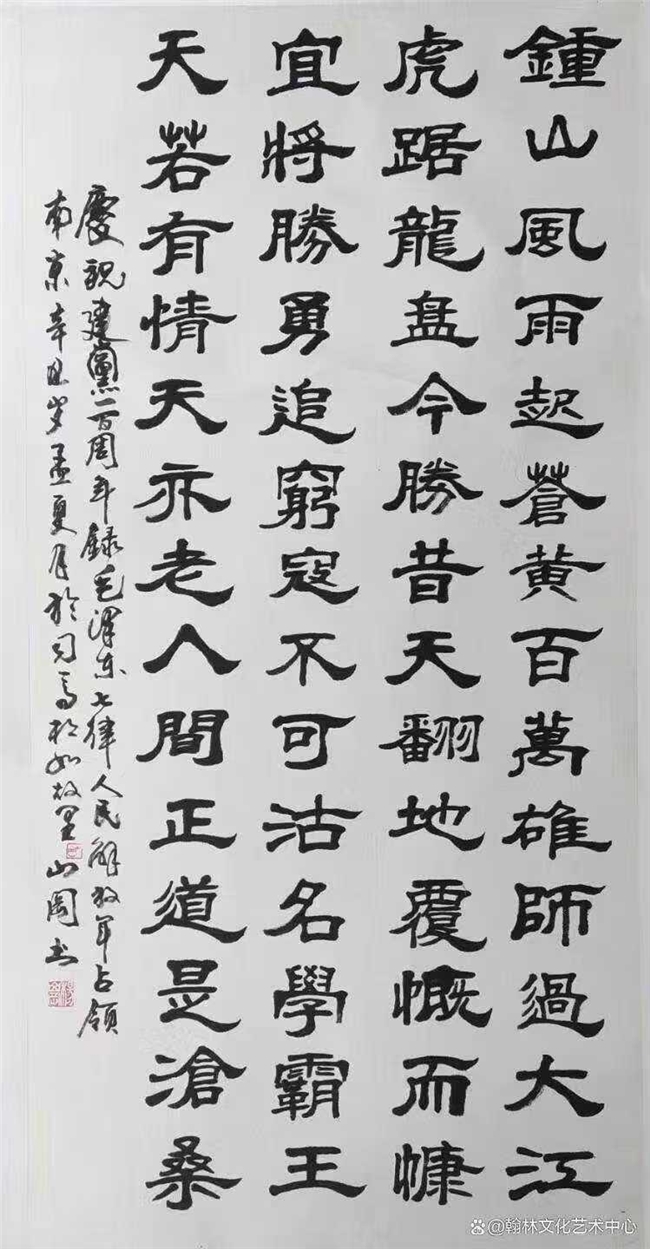 鍾山風雨起蒼黄百萬雄師過大江
虎踞龍盘今勝昔天翻地覆慨而慷
宜將勝勇追窮寇不可沽名學霸王
天若有情天亦老人間正道是滄桑
慶祝建黨一百周年録毛澤东七律人民解放军占领
南京辛丑岁孟夏月於司馬相如故里山岡书
@翰林文化艺术中心